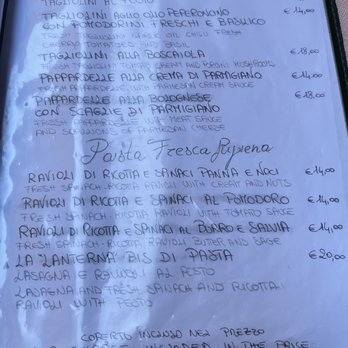 TAGLIOLINI AL PESTO
TAGLIOLINI AGLIO OLIO PEPERONCINO €14,00
CON POMODORINI FRESCHI E BASILICO
FRESH TAGLIOLINI GARLIC OIL CHILI FRESH
CHERRY TOMATOES AND BASIL
TAGLIOLINI ALLA BOSCAIOLA €18,00
FRESH TAGLIOLINI AND MUSHROOMS
PAPPARDELLE ALLA CREMA DI PARMIGIANO €14,00
FRESH PAPPARDELLE WITH PARMESAN CREAM SAUCE
PAPPARDELLE ALLA BOLOGNESE €18,00
CON SCAGLIE DI PARMIGIANO
FRESH PAPPARDELLE WITH MEAT SAUCE
AND SCALLIONS OF PARMESAN CHEESE
Pasta Fresca Ripiena
RAVIOLI DI RICOTTA E SPINACI PANNA E NOCI €14,00
FRESH SPINACH-RICOTTA RAVIOLI WITH CREAM AND NUTS
RAVIOLI DI RICOTTA E SPINACI AL POMODORO €14,00
FRESH SPINACH-RICOTTA RAVIOLI WITH TOMATO SAUCE
RAVIOLI DI RICOTTA E SPINACI AL BURRO E SALVIA €14,00
FRESH SPINACH-RICOTTA RAVIOLI BUTTER AND SAGE
LA "LANTERNA" BIS DI PASTA €20,00
LASAGNA E RAVIOLI AL PESTO
LASAGNA AND FRESH SPINACH AND RICOTTA
RAVIOLI WITH PESTO
COPERTO INCLUSO NEL PREZZO
INCLUDED IN THE PRICE